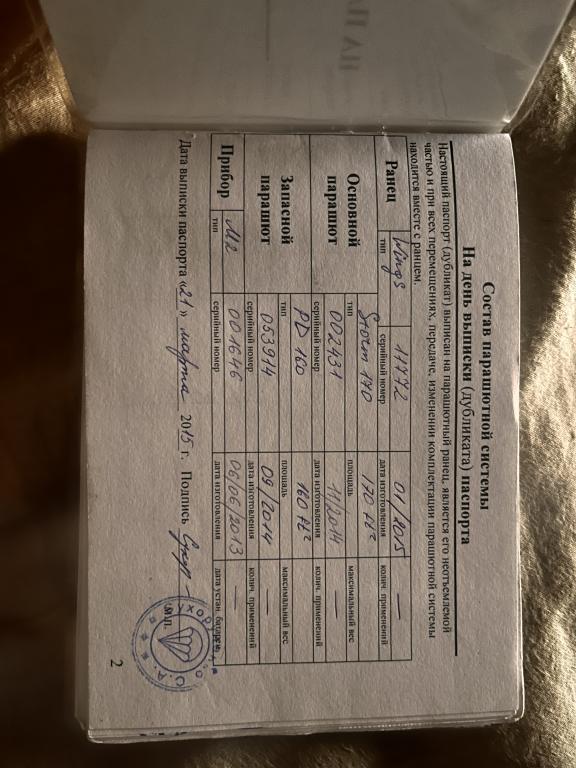 Состав парашютной системы
На день выписки (дубликата) паспорта
Настоящий паспорт (дубликат) выписан на парашютный ранец, является его неотъемлемой
частью и при всех перемещениях, передаче, изменении комплектации парашютной системы
находится вместе с ранцем.
Ранец Wings 11772 01/2015 —
тип серийный номер дата изготовления колич. применений
Основной парашют Storm 170 170 ft²
тип площадь максимальный вес
002431 11/2014 —
серийный номер дата изготовления колич. применений
Запасной парашют PD 160 160 ft²
тип площадь максимальный вес
053914 09/2014 —
серийный номер дата изготовления колич. применений
Прибор M2 001646 06/06/2013 —
тип серийный номер дата изготовления дата устан. батареи
Дата выписки паспорта «21» марта 2015 г. Подпись
2